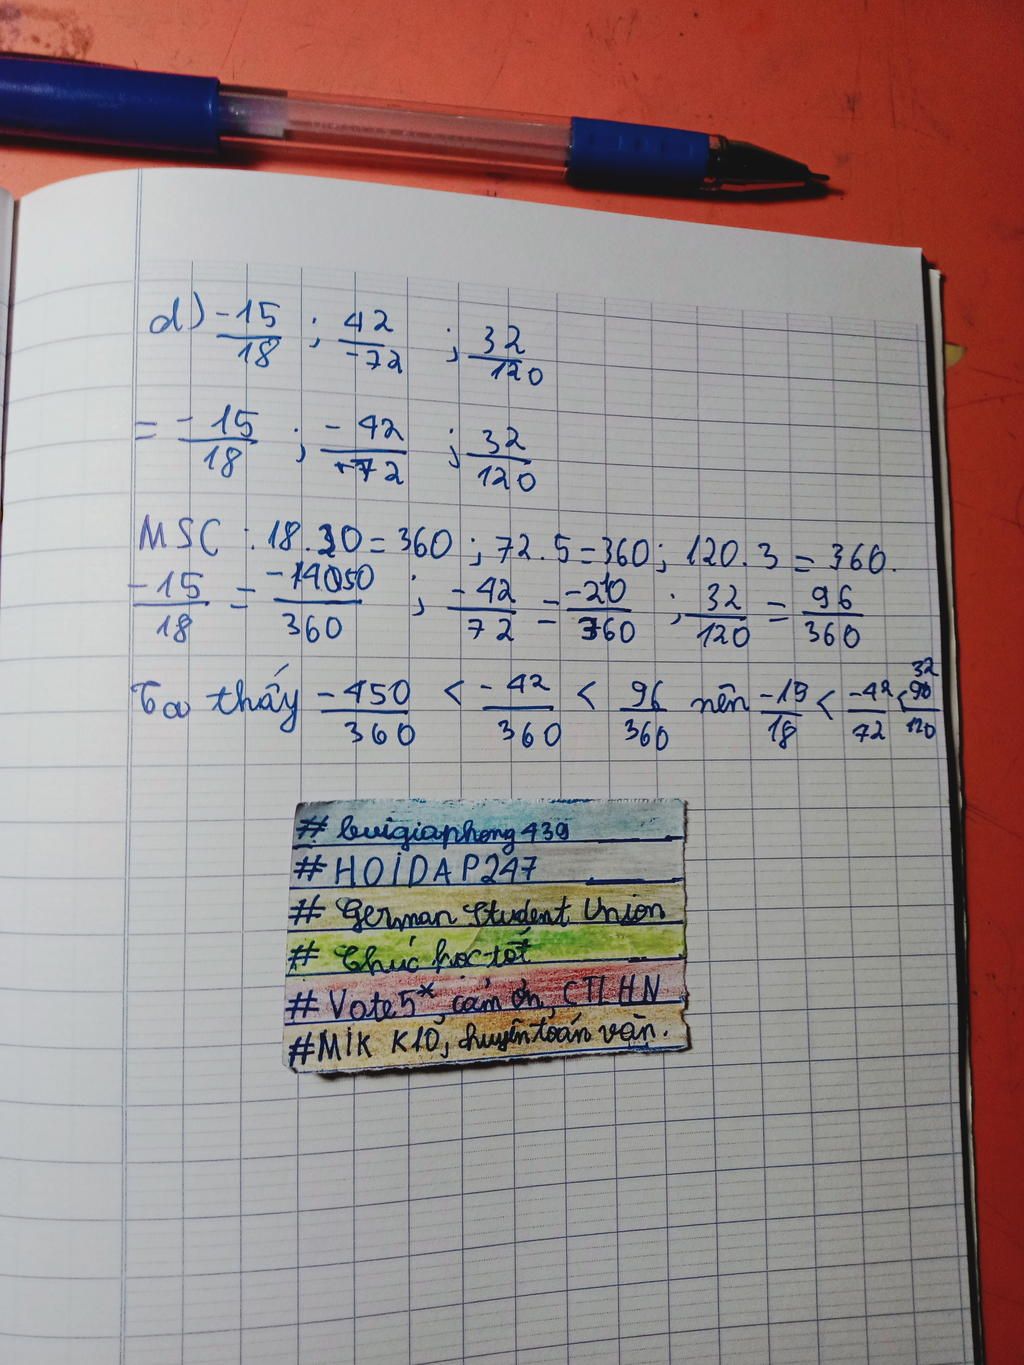 d) -15/18 ; 42/-72 ; 32/120
= -15/18 ; -42/72 ; 32/120
MSC : 18.20 = 360 ; 72.5 = 360 ; 120.3 = 360.
-15/18 = /360 ; -42/72 = -210/360 ; 32/120 = 96/360
Ta thấy -450/360 < -42/360 < 96/360 nên -15/18 < -42/72 < 32/120
# buigiaphong439
# HOIDAP247
# German Student Union
# Chúc học tốt
# Vote 5*, cảm ơn, CTLHN
#MIK K10, chuyên toán văn.